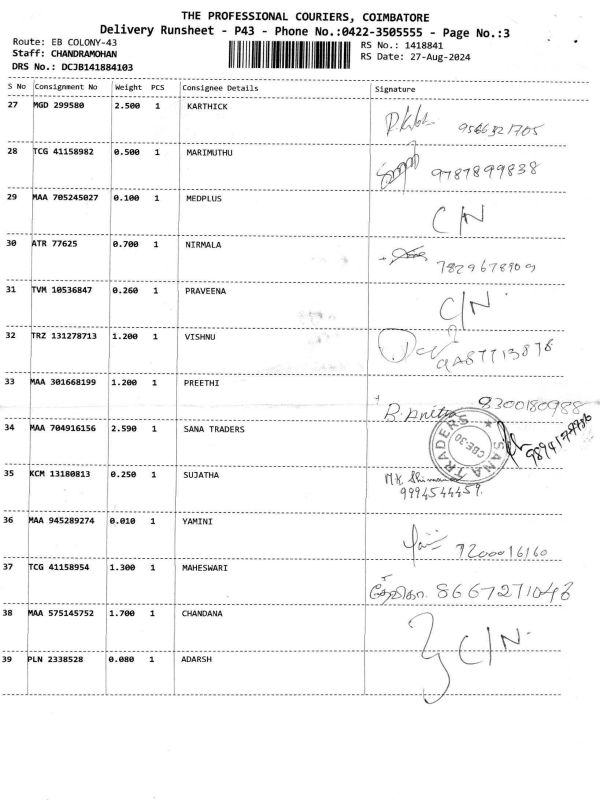 THE PROFESSIONAL COURIERS, COIMBATORE
Delivery Runsheet - P43 - Phone No.:0422-3505555 - Page No.:3
Route: EB COLONY-43
RS No.: 1418841
Staff: CHANDRAMOHAN
RS Date: 27-Aug-2024
DRS No.: DCJB141884103
S No Consignment No Weight PCS Consignee Details Signature
27 MGD 299580 2.500 1 KARTHICK
9566321705
28 TCG 41158982 0.500 1 MARIMUTHU
9787899838
29 MAA 705245027 0.100 1 MEDPLUS
C/N
30 ATR 77625 0.700 1 NIRMALA
7829678909
31 TVM 10536847 0.260 1 PRAVEENA
C/N.
32 TRZ 131278713 1.200 1 VISHNU
33 MAA 301668199 1.200 1 PREETHI
R. Anitha 9300180988
34 MAA 704916156 2.590 1 SANA TRADERS
SANA TRADERS
CBE-30
35 KCM 13180813 0.250 1 SUJATHA
9994544459.
36 MAA 945289274 0.010 1 YAMINI
7200016160
37 TCG 41158954 1.300 1 MAHESWARI
8667271043
38 MAA 575145752 1.700 1 CHANDANA
C/N.
39 PLN 2338528 0.080 1 ADARSH